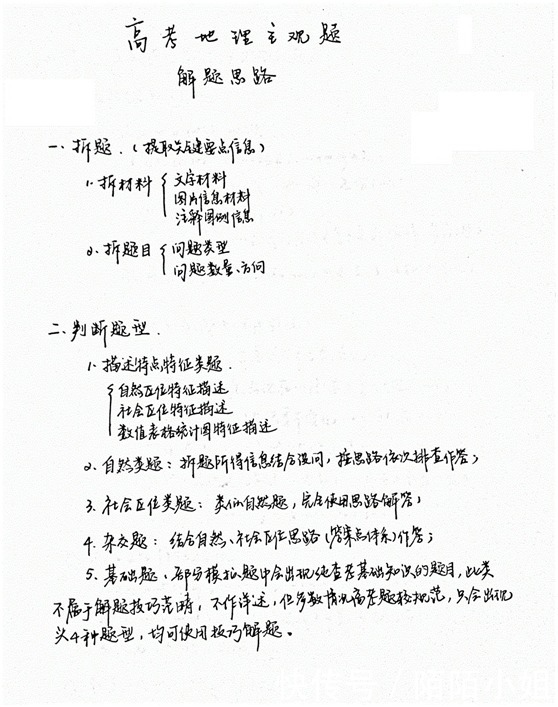 高考地理主观题
解题思路
一、拆题.(提取关键要点信息)
1. 拆材料 { 文字材料
图片信息材料
注解图例信息
2. 拆题目 { 问题类型
问题数量、方向
二、判断题型.
1. 描述特点特征类题.
{ 自然区位特征描述
社会区位特征描述
数值表格统计图特征描述
2. 自然类题:拆题所得信息结合设问,按思路依次排查作答;
3. 社会区位类题:类似自然题,完全使用思路解答;
4. 杂交题:结合自然、社会区位思路(答案点体系)作答;
5. 基础题、部分模拟题中会出现纯查考基础知识的题目,此类
不属于解题技巧范畴,不作详述,但多数情况高考题较规范,只会出现
头4种题型,均可使用技巧解题。
快传号/阴陌小姐